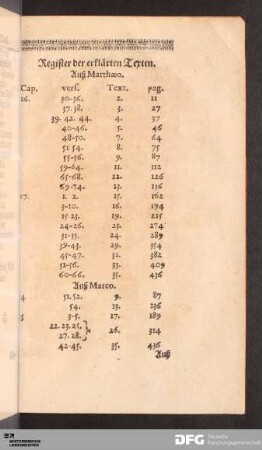 Register der erklärten Texten.
Auß Matthæo.
Cap. vers. Text. pag.
26. 30-36. 2. 11
37. 38. 3. 27
39. 42. 44. 4. 37
40-46. 5. 46
48-50. 7. 64
51 54. 8. 75
55-56. 9. 87
59-64. 11. 112
65-68. 12. 126
69-74. 13. 136
27. 1. 2. 15. 162
3-10. 16. 194
15-23. 19. 215
24-26. 23. 274
31-33. 24. 289
39-43. 29. 354
45-47. 31. 382
51-56. 33. 409
60-66. 35. 436
Auß Marco.
4 51. 52. 9. 87
54. 13. 136
5 3-5. 17. 189
22. 23. 25. } 26. 314
27. 28.
42-45. 35. 436
Auß
DFG Deutsche
Forschungsgemeinschaft